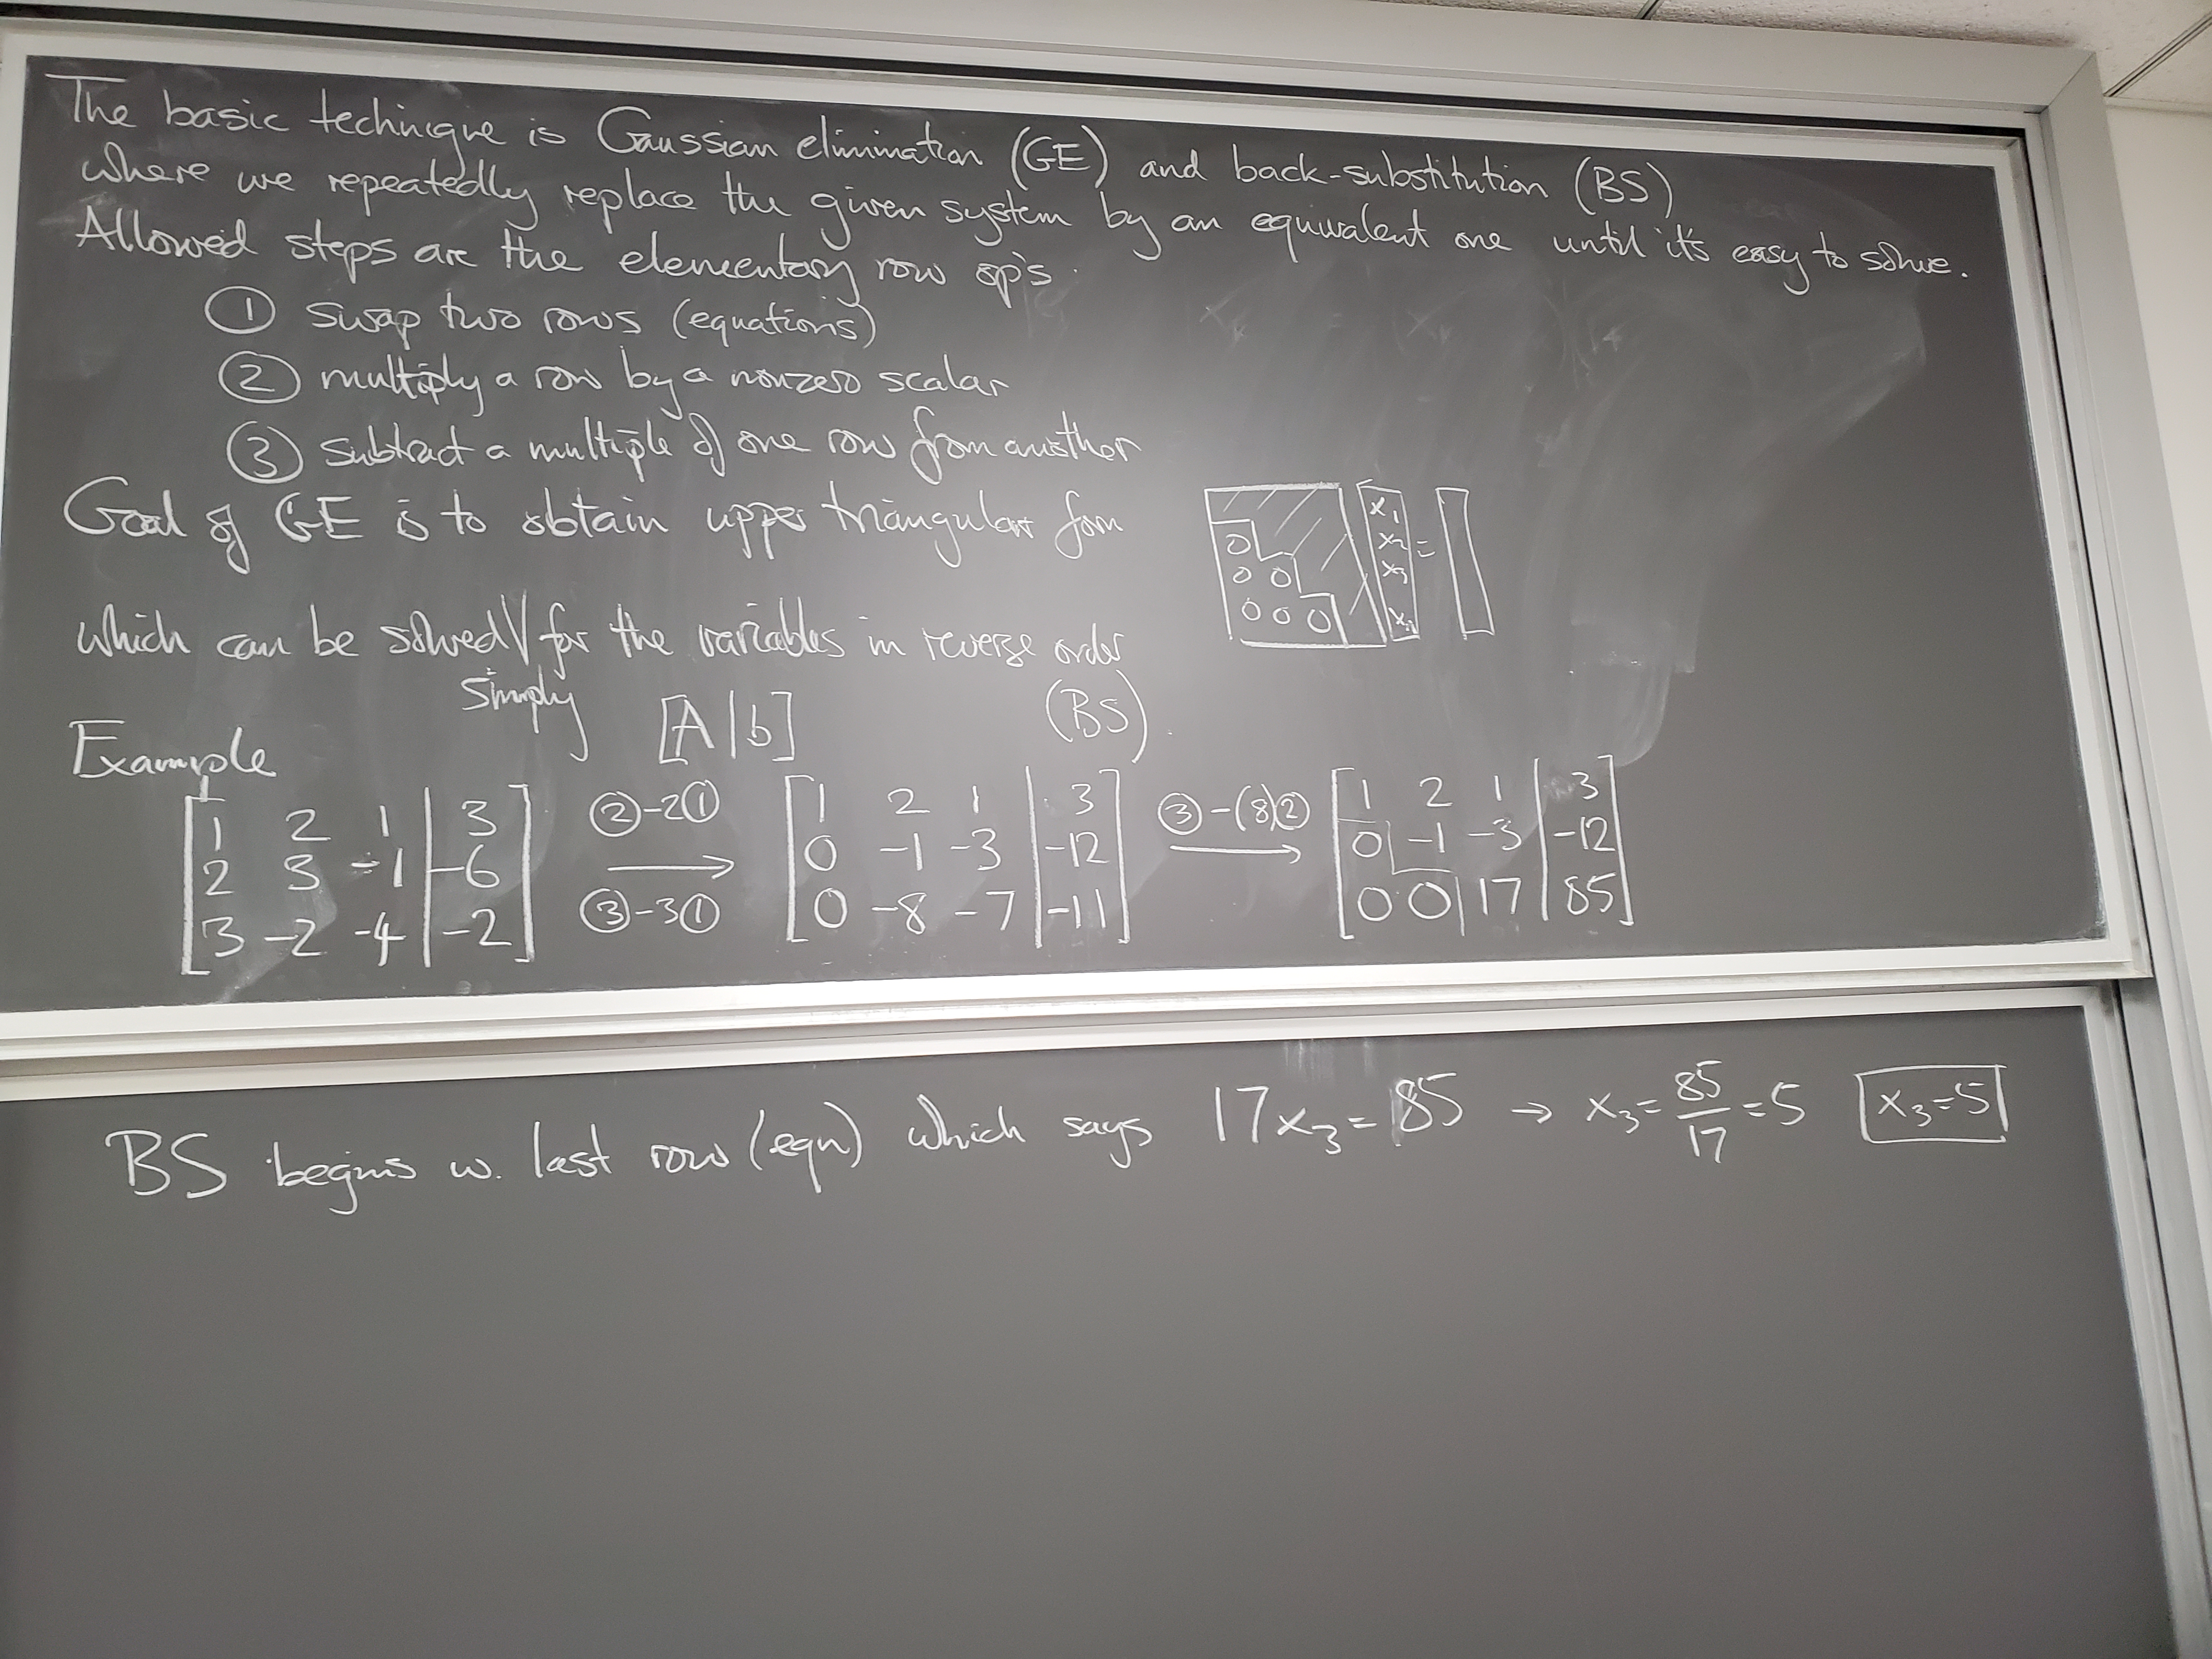 The basic technique is Gaussian elimination (GE) and back-substitution (BS)
where we repeatedly replace the given system by an equivalent one until it's easy to solve.
Allowed steps are the elementary row op's.
① swap two rows (equations)
② multiply a row by a nonzero scalar
③ subtract a multiple of one row from another
Goal of GE is to obtain upper triangular form
0
0 0
0 0 0
x₁
x₂
x₃
xₙ
=
which can be solved simply for the variables in reverse order
(BS).
Example
[A|b]
[1 2 1 | 3] ②-2① [1 2 1 | 3] ③-(8)② [1 2 1 | 3]
[2 3 -1 | -6] → [0 -1 -3 | -12] → [0 -1 -3 | -12]
[3 -2 -4 | -2] ③-3① [0 -8 -7 | -11] [0 0 17 | 85]
BS begins w. last row (eqn) which says 17x₃=85 → x₃=85/17=5 x₃=5